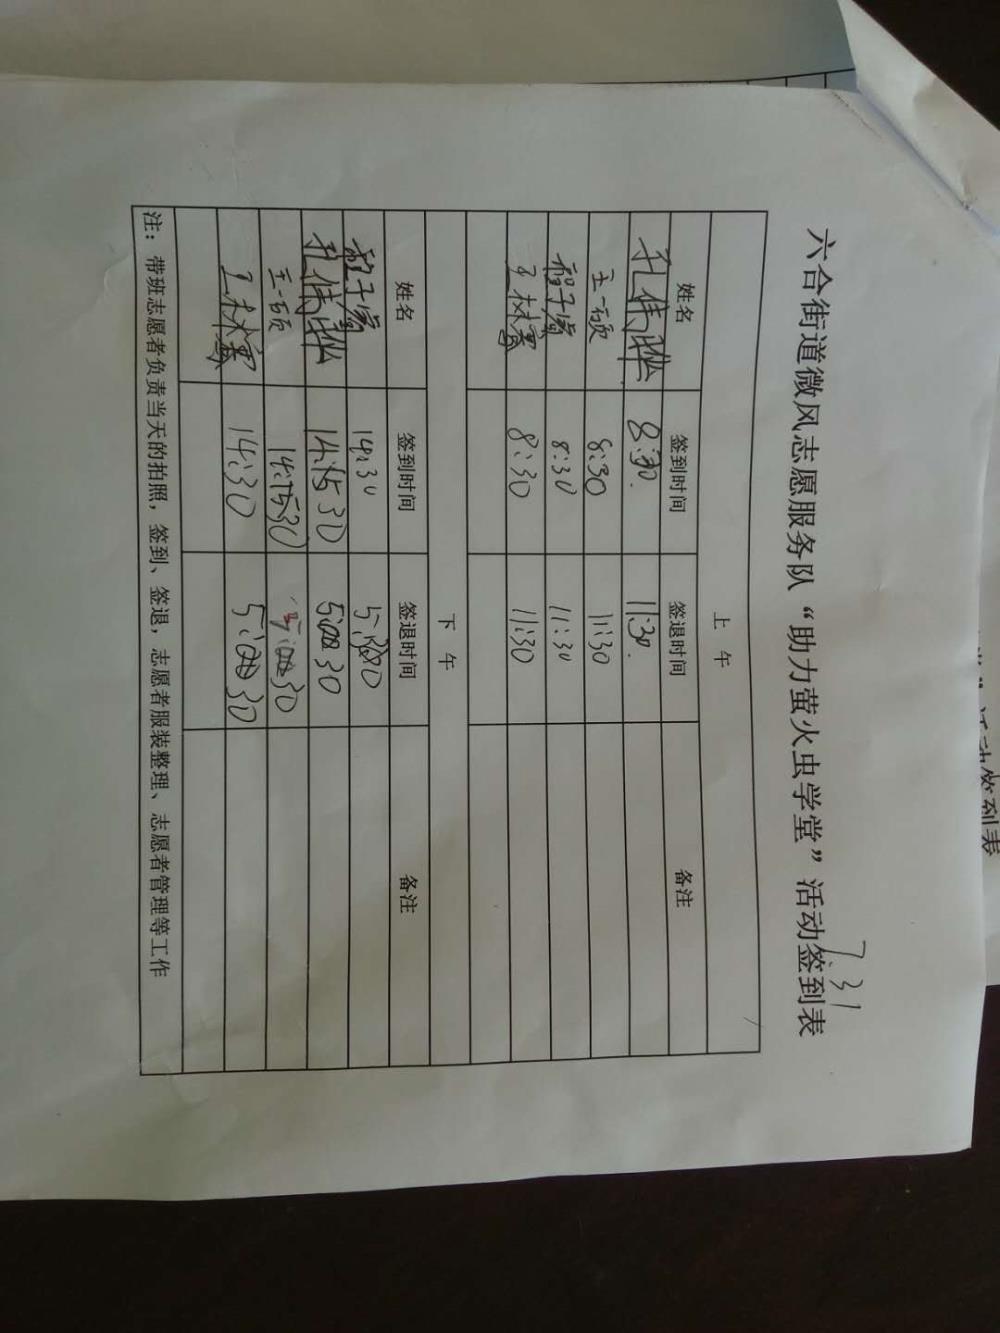 7.31
六合街道微风志愿服务队“助力萤火虫学堂”活动签到表
上 午
姓名 签到时间 签退时间 备注
孔伟 8:30. 11:30.
王一硕 8:30 11:30
程子 8:30 11:30
王林 8:30 11:30
下 午
姓名 签到时间 签退时间 备注
程子 14:30 5:30
孔伟 14:15 30 5:00 30
王一硕 14:15 30 5:00 30
王林 14:30 5:00 30
注：带班志愿者负责当天的拍照，签到、签退，志愿者服装整理、志愿者管理等工作
活动签到表